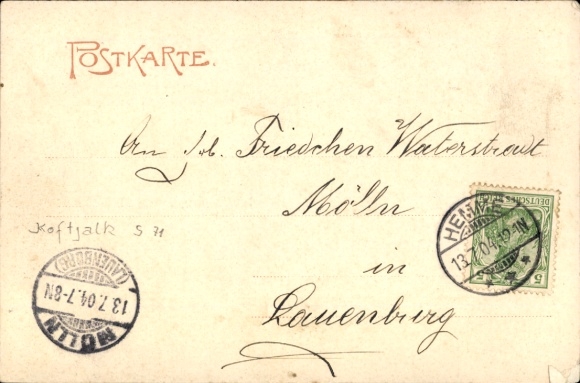 POSTKARTE.
An Frl. Friedchen Waterstradt
Mölln
in
Lauenburg
Koftjalk S 71
HEMME
13.7.04.12-1N
DEUTSCHES
5
5
(LAUENBURG)
13.7.04.7-8N
MÖLLN